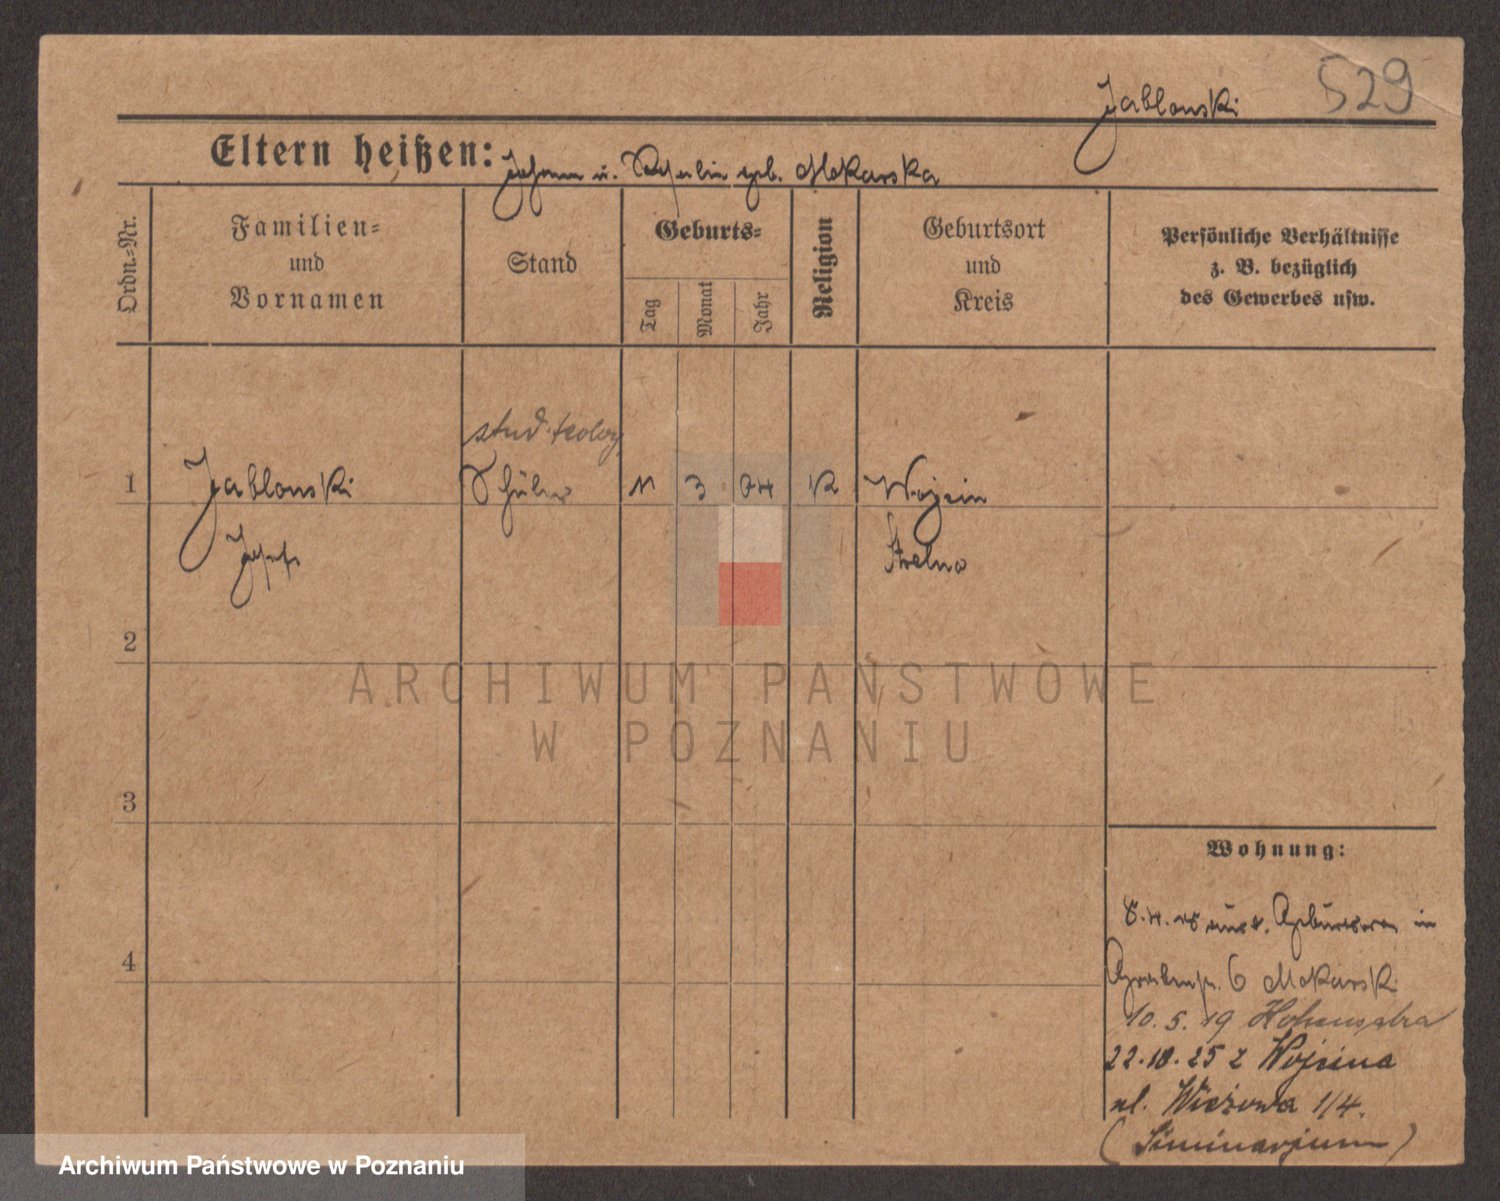 529
Jablonski
Eltern heißen: Johann u. geb. Mokarska
Ordn.-Nr.
Familien-
und
Vornamen
Stand
Geburts-
Tag
Monat
Jahr
Religion
Geburtsort
und
Kreis
Persönliche Verhältnisse
z. B. bezüglich
des Gewerbes usw.
stud. teolog
1 Jablonski Schüler 11 3 04 K Wojcin
Josef Strelno
2
3
4
ARCHIWUM PAŃSTWOWE
W POZNANIU
Wohnung:
in
6 Mokarski
10.5.19 Hohensalza
22.10.25 z Wojcina
ul. Wieżowa 1/4.
(Siminarjum)
Archiwum Państwowe w Poznaniu